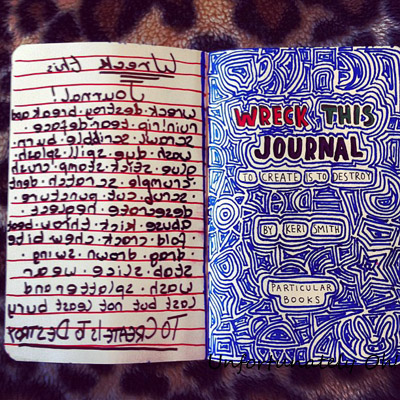 Wreck this
Journal!
wreck. destroy. break and
ruin! rip. tear. deface.
scrawl. scribble. burn.
spill. splash.
glue. stick. stamp. crush
crumple. scratch. dent
cut. puncture.
desecrate neglect
abuse. kick. throw. boot
fold. crack. chew bite
drag. drown. swing.
stab. slice. wear
wash. splatter and
last but not least bury
TO CREATE IS TO DESTROY
WRECK THIS
JOURNAL
TO CREATE IS TO DESTROY
BY KERI SMITH
PARTICULAR
BOOKS
Unfortunately